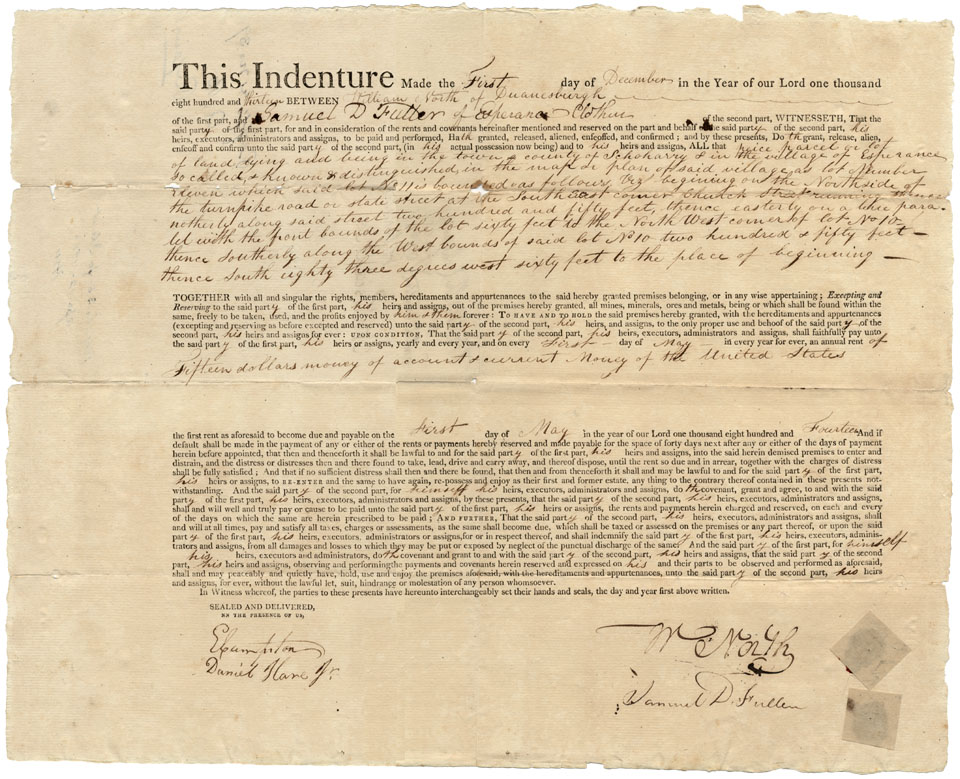 This Indenture Made the First day of December in the Year of our Lord one thousand
eight hundred and thirteen BETWEEN William North of Duanesburgh
of the first part, and Samuel D Fuller of Esperance Clothier of the second part, WITNESSETH, That the
said party of the first part, for and in consideration of the rents and covenants hereinafter mentioned and reserved on the part and behalf of the said party of the second part, his
heirs, executors, administrators and assigns, to be paid and performed, Hath granted, released, aliened, enfeoffed, and confirmed; and by these presents, Doth grant, release, alien,
enfeoff and confirm unto the said party of the second part, (in his actual possession now being) and to his heirs and assigns, ALL that peice parcel or lot
of land lying and being in the town & county of Schoharry & in the village of Esperance
so called, & known & distinguished, in the map or plan of said village as lot Number
eleven which said lot No 11 is bounded as follows Viz beginning on the Northside of
the turnpike road or state street at the South corner Church
northerly along said street two hundred and fifty feet, thence easterly on a line para-
lel with the front bounds of the lot sixty feet to the North West corner of lot No 10
thence Southerly along the West bounds of said lot No 10 two hundred & fifty feet —
thence South eighty three degrees west sixty feet to the place of beginning —
TOGETHER with all and singular the rights, members, hereditaments and appurtenances to the said hereby granted premises belonging, or in any wise appertaining; Excepting and
Reserving to the said party of the first part, his heirs and assigns, out of the premises hereby granted, all mines, minerals, ores and metals, being or which shall be found within the
same, freely to be taken, used, and the profits enjoyed by him & them forever: TO HAVE AND TO HOLD the said premises hereby granted, with the hereditaments and appurtenances
(excepting and preserving as before excepted and reserved) unto the said party of the second part, his heirs, and assigns, to the only proper use and behoof of the said party of the
second part, his heirs and assigns for ever: UPON CONDITION, That the said party of the second part, his heirs, executors, administrators and assigns, shall faithfully pay unto
the said party of the first part, his heirs or assigns, yearly and every year, and on every First — day of May — in every year for ever, an annual rent of
Fifteen dollars money of account & current Money of the United States
the first rent as aforesaid to become due and payable on the First day of May in the year of our Lord one thousand eight hundred and Fourteen And if
default shall be made in the payment of any or either of the rents or payments hereby reserved and made payable for the space of forty days next after any or either of the days of payment
herein before appointed, that then and thenceforth it shall be lawful to and for the said party of the first part, his heirs and assigns, into the said herein demised premises to enter and
distrain, and the distress or distresses then and there found to take, lead, drive and carry away, and thereof dispose, until the rent so due and in arrear, together with the charges of distress
shall be fully satisfied; And that if no sufficient distress shall then and there be found, that then and from thenceforth it shall and may be lawful to and for the said party of the first part,
his heirs or assigns, to RE-ENTER and the same to have again, re-possess and enjoy as their first and former estate, any thing to the contrary thereof contained in these presents not-
withstanding. And the said party of the second part, for himself his heirs, executors, administrators and assigns, doth covenant, grant and agree, to and with the said
party of the first part, his heirs, executors, administrators and assigns, by these presents, that the said party of the second part, his heirs, executors, administrators and assigns,
shall and will well and truly pay or cause to be paid unto the said party of the first part, his heirs or assigns, the rents and payments herein charged and reserved, on each and every
of the days on which the same are herein prescribed to be paid; AND FURTHER, That the said party of the second part, his heirs, executors, administrators and assigns, shall
and will at all times, pay and satisfy all taxes, charges or assessments, as the same shall become due, which shall be taxed or assessed on the premises or any part thereof, or upon the said
party of the first part, his heirs, executors, administrators or assigns, for or in respect thereof, and shall indemnify the said party of the first part, his heirs, executors, adminis-
trators and assigns, from all damages and losses to which they may be put or exposed by neglect of the punctual discharge of the same And the said party of the first part, for himself
his heirs, executors and administrators, doth covenant and grant to and with the said party of the second part, his heirs and assigns, that the said party of the second
part, his heirs and assigns, observing and performing the payments and covenants herein reserved and expressed on his and their parts to be observed and performed as aforesaid,
shall and may peaceably and quietly have, hold, use and enjoy the premises aforesaid, with the hereditaments and appurtenances, unto the said party of the second part, his heirs
and assigns, for ever, without the lawful let, suit, hindrance or molestation of any person whomsoever.
In Witness whereof, the parties to these presents have hereunto interchangeably set their hands and seals, the day and year first above written.
SEALED AND DELIVERED,
IN THE PRESENCE OF US,
Daniel Hare Jr
Wm North
Samuel D. Fuller